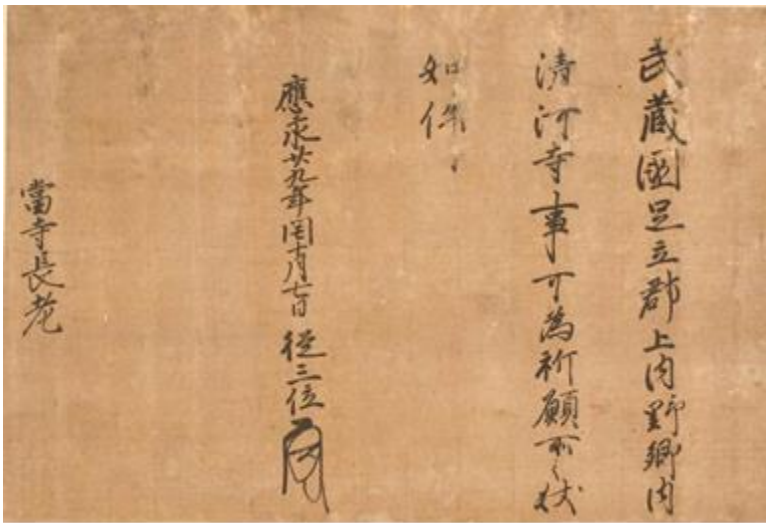 武蔵國足立郡上内野郷内
清河寺事可為祈願所之状
如件、
應永廿九年閏十月七日 従三位
當寺長老